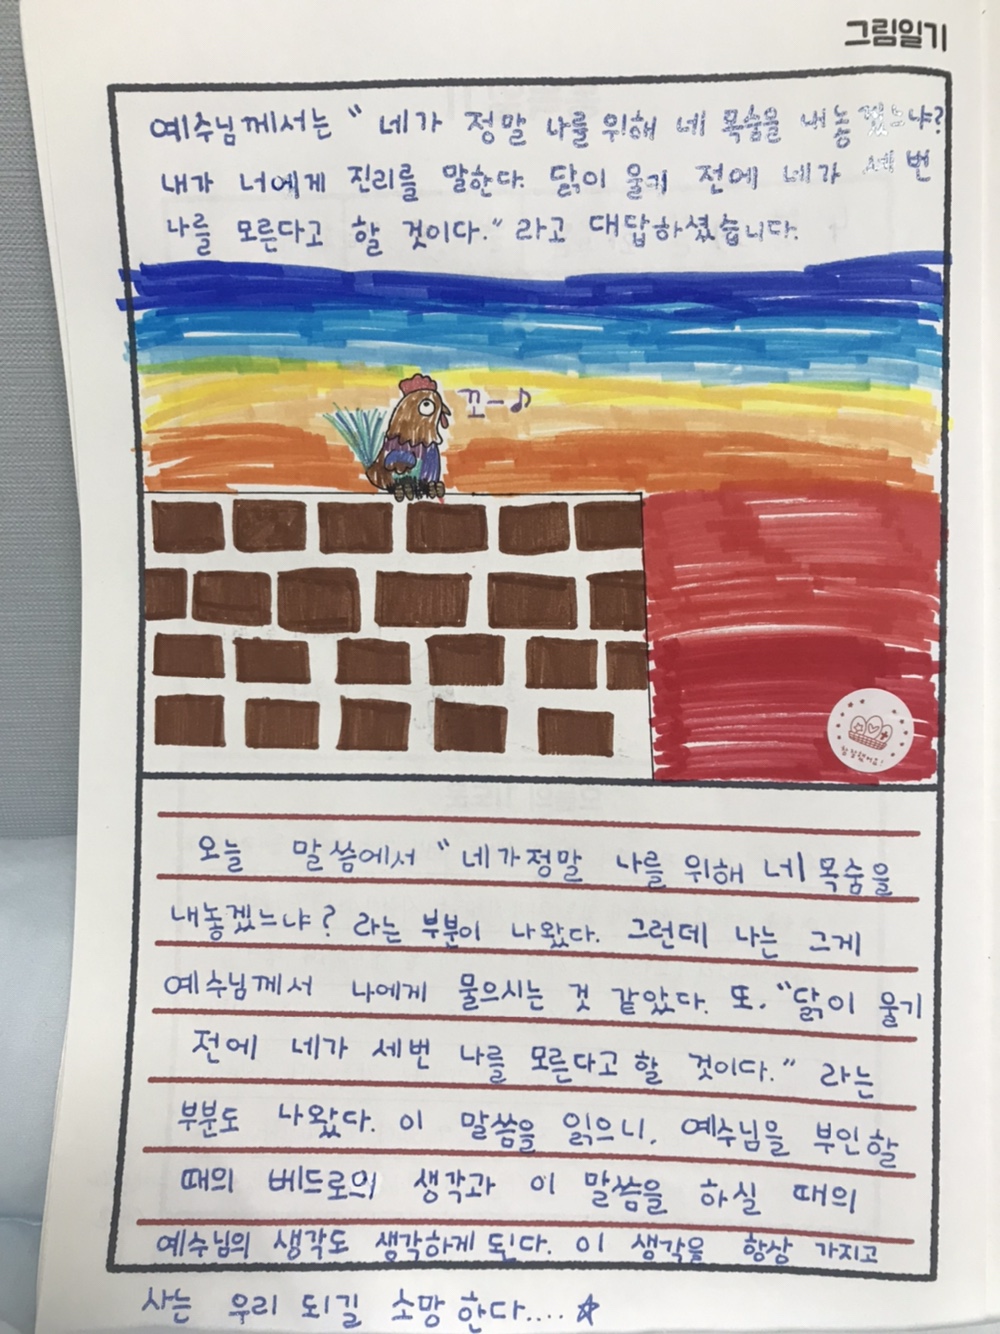 그림일기
예수님께서는 " 네가 정말 나를 위해 네 목숨을 내놓겠느냐?
내가 너에게 진리를 말한다. 닭이 울기 전에 네가 세 번
나를 모른다고 할 것이다." 라고 대답하셨습니다.
꼬-♪
참 잘했어요!
오늘 말씀에서 " 네가 정말 나를 위해 네 목숨을
내놓겠느냐? 라는 부분이 나왔다. 그런데 나는 그게
예수님께서 나에게 물으시는 것 같았다. 또, "닭이 울기
전에 네가 세 번 나를 모른다고 할 것이다." 라는
부분도 나왔다. 이 말씀을 읽으니, 예수님을 부인할
때의 베드로의 생각과 이 말씀을 하실 때의
예수님의 생각도 생각하게 된다. 이 생각을 항상 가지고
사는 우리 되길 소망한다.... ☆